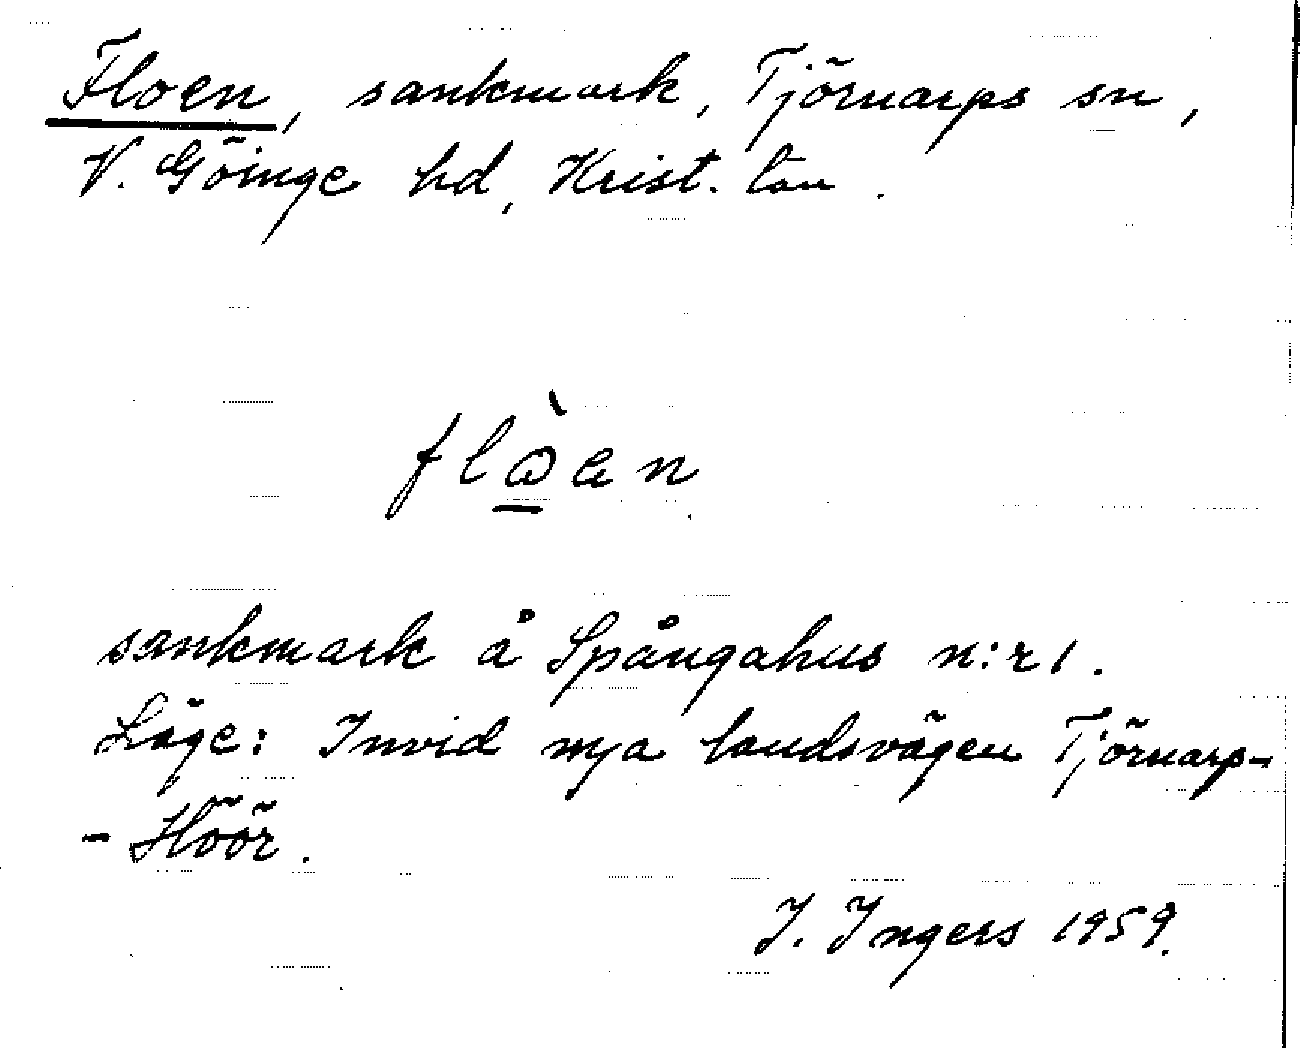 Floen, sankmark, Tjörnarps sn,
V. Göinge hd, Krist. län.
flòen
sankmark å Spångahus n:r 1.
Läge: Invid nya landsvägen Tjörnarp-
- Höör.
I. Ingers 1959.